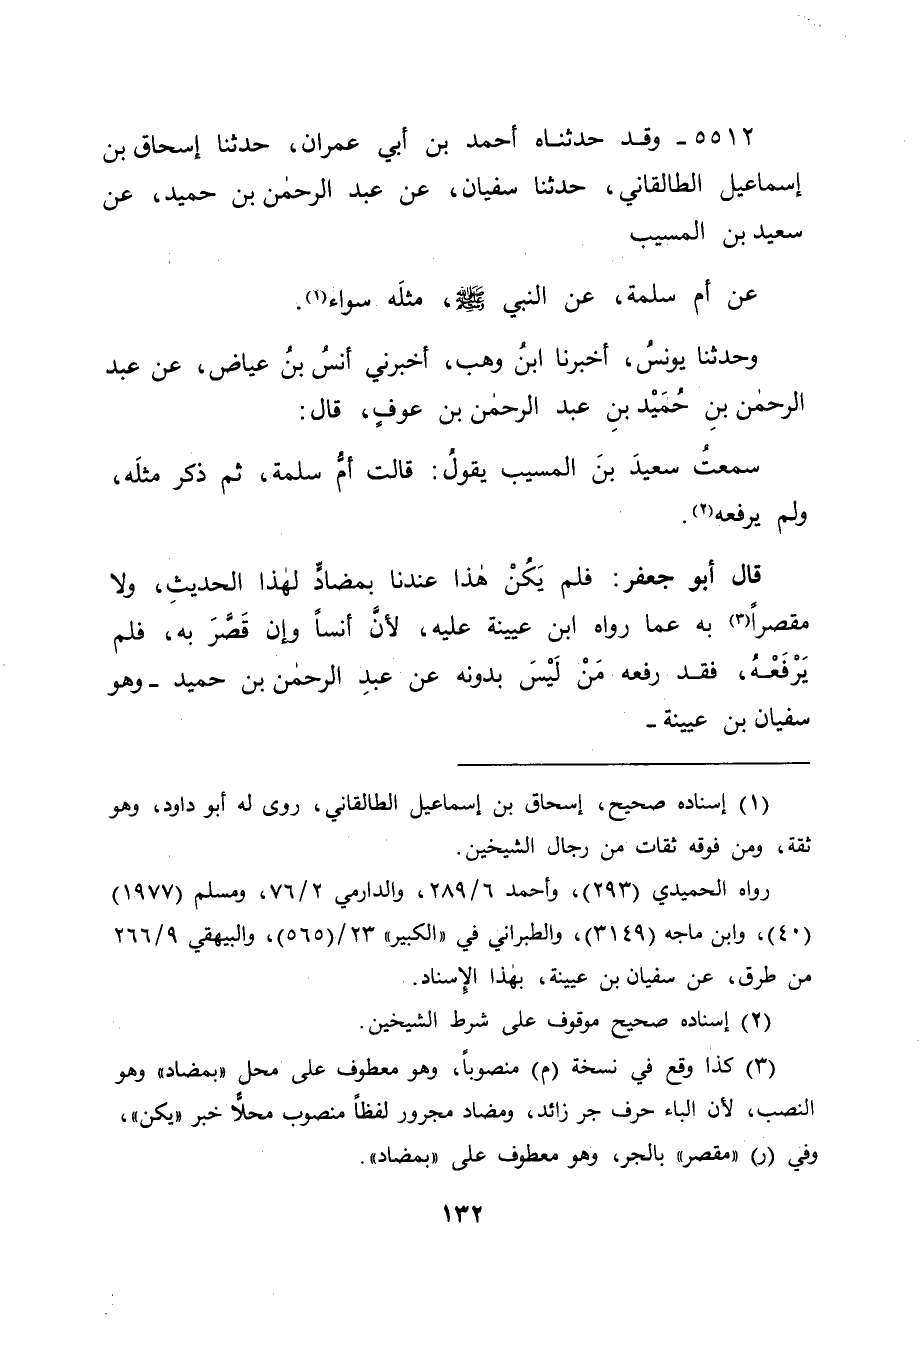 ٥٥١٢ ـ وقـد حدثنـاه أحمد بن أبي عمران، حدثنا إسحاق بن
إسماعيل الطالقاني، حدثنا سفيان، عن عبد الرحمٰن بن حميد، عن
سعيد بن المسيب
عن أم سلمة، عن النبي ﷺ، مثلَه سواء(١).
وحدثنا يونسُ، أخبرنا ابنُ وهب، أخبرني أنسُ بنُ عياض، عن عبد
الرحمٰن بنِ حُمَيْد بنِ عبد الرحمٰن بن عوفٍ، قال:
سمعتُ سعيدَ بنَ المسيب يقولُ: قالت أمُّ سلمة، ثم ذكر مثلَه،
ولم يرفعه(٢).
قال أبو جعفر: فلم يَكُنْ هٰذا عندنا بمضادٍّ لهٰذا الحديثِ، ولا
مقصراً(٣) به عما رواه ابن عيينة عليه، لأنَّ أنساً وإن قَصَّرَ به، فلم
يَرْفَعْـهُ، فقـد رفعه مَنْ لَيْسَ بدونه عن عبدِ الرحمٰن بن حميد ـ وهو
سفيان بن عيينة ـ
(١) إسناده صحيح، إسحاق بن إسماعيل الطالقاني، روى له أبو داود، وهو
ثقة، ومن فوقه ثقات من رجال الشيخين.
رواه الحميدي (٢٩٣)، وأحمد ٢٨٩/٦، والدارمي ٧٦/٢، ومسلم (١٩٧٧)
(٤٠)، وابن ماجه (٣١٤٩)، والطبراني في «الكبير» ٢٣/(٥٦٥)، والبيهقي ٢٦٦/٩
من طرق، عن سفيان بن عيينة، بهٰذا الإِسناد.
(٢) إسناده صحيح موقوف على شرط الشيخين.
(٣) كذا وقع في نسخة (م) منصوباً، وهو معطوف على محل «بمضاد» وهو
النصب، لأن الباء حرف جر زائد، ومضاد مجرور لفظاً منصوب محلًّا خبر «يكن»،
وفي (ر) «مقصر» بالجر، وهو معطوف على «بمضاد».
١٣٢